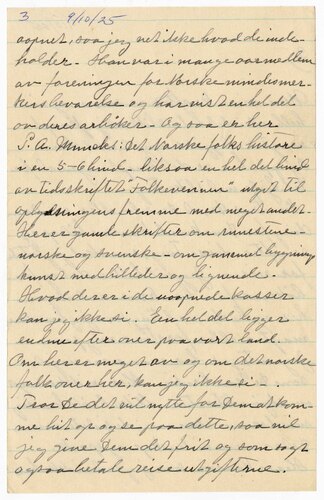 3 9/10/25
aapnet, saa jeg vet ikke hvad de inde
holder. Han var i mange aar mellem
av foreningen for Norske mindesmer-
kers bevarelse og har vist en hel del
av deres arbøker. Og saa er her
P. A. Munchs: Det Norske folks histore
i en 5-6 bind - liksaa en hel del bind
av tidsskriftet Folkevennen" utget til
oplydsningens fremme med meget andet.
Her er gamle skrifter om runestene-
norske og svenske - om gammel bygnings
kunst med billeder og lignende.
Hvad der er i de uaapnede kasser
kan jeg ikke si. En hel del ligger
endnu efter over paa vort land.
Om her er meget av og om det norske
folk over her, kan jeg ikke si -.
Tror De det vil nytte for Dem at kom-
me hit op og se paa dette, saa vil
jeg give Dem det frit og som sagt
ogsaa betale reise utgifterne.